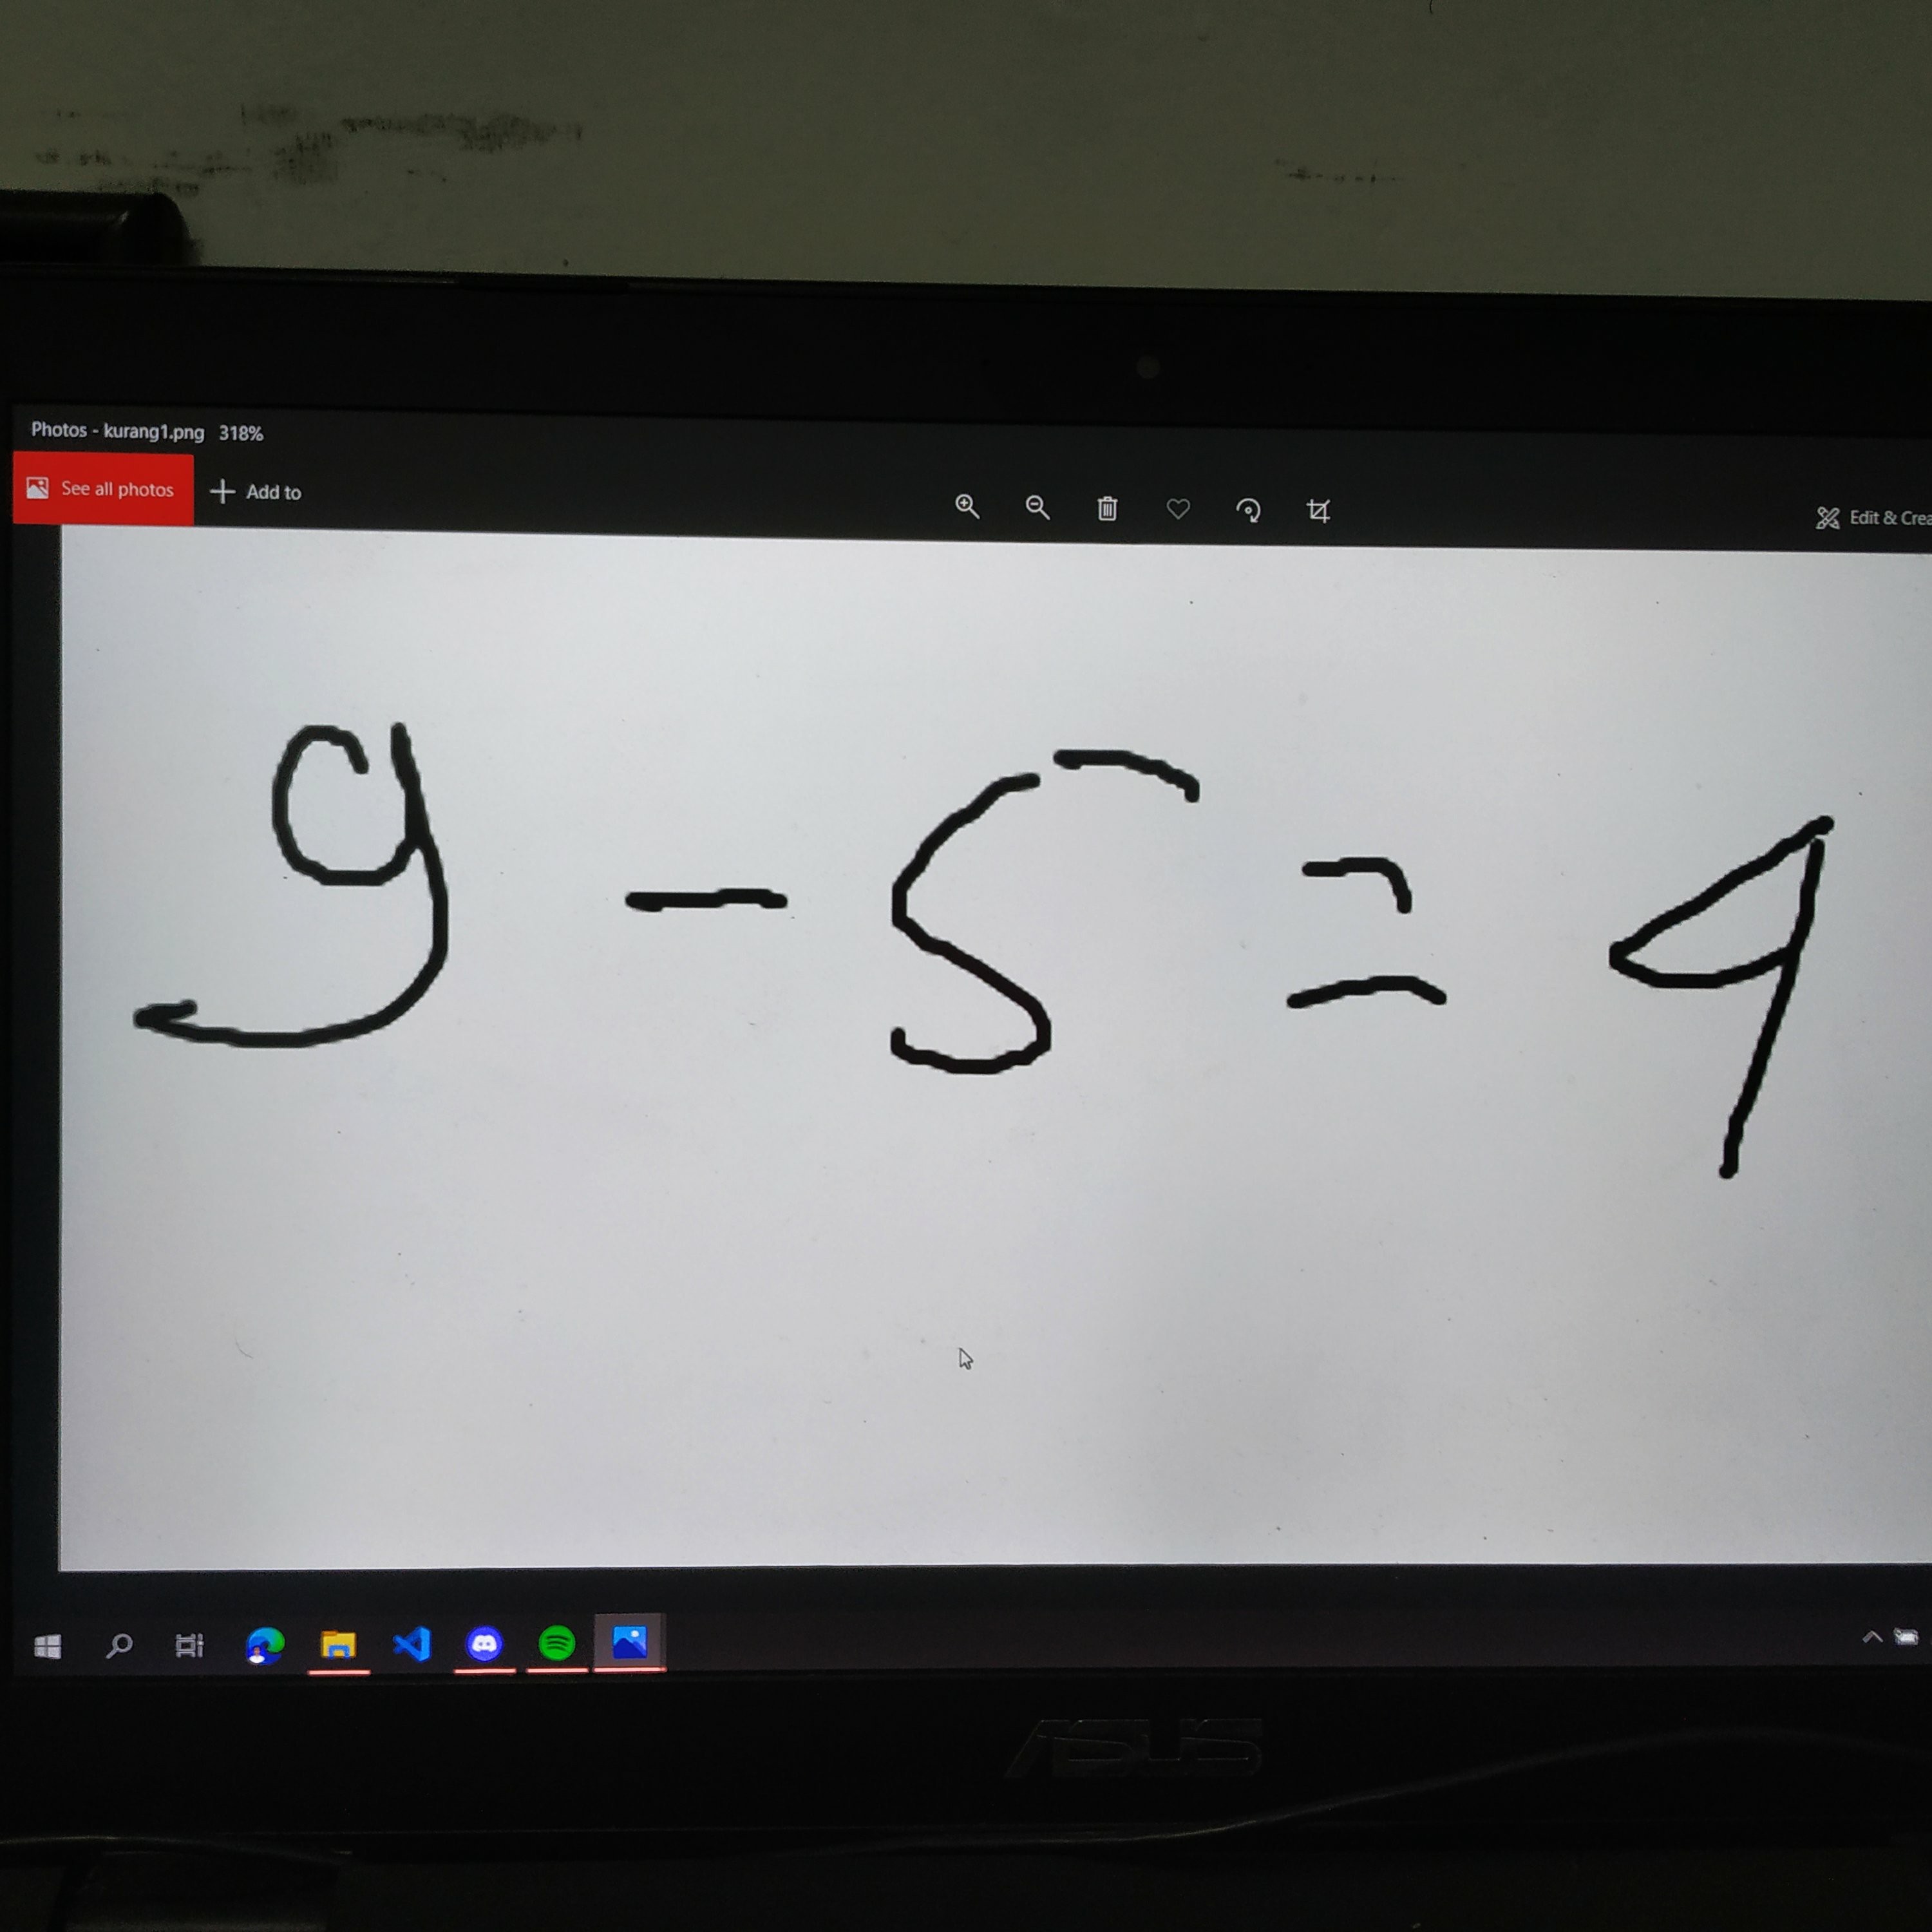 Photos - kurang1.png 318%
See all photos
Add to
Edit & Crea
9 - 5 = 4
ASUS